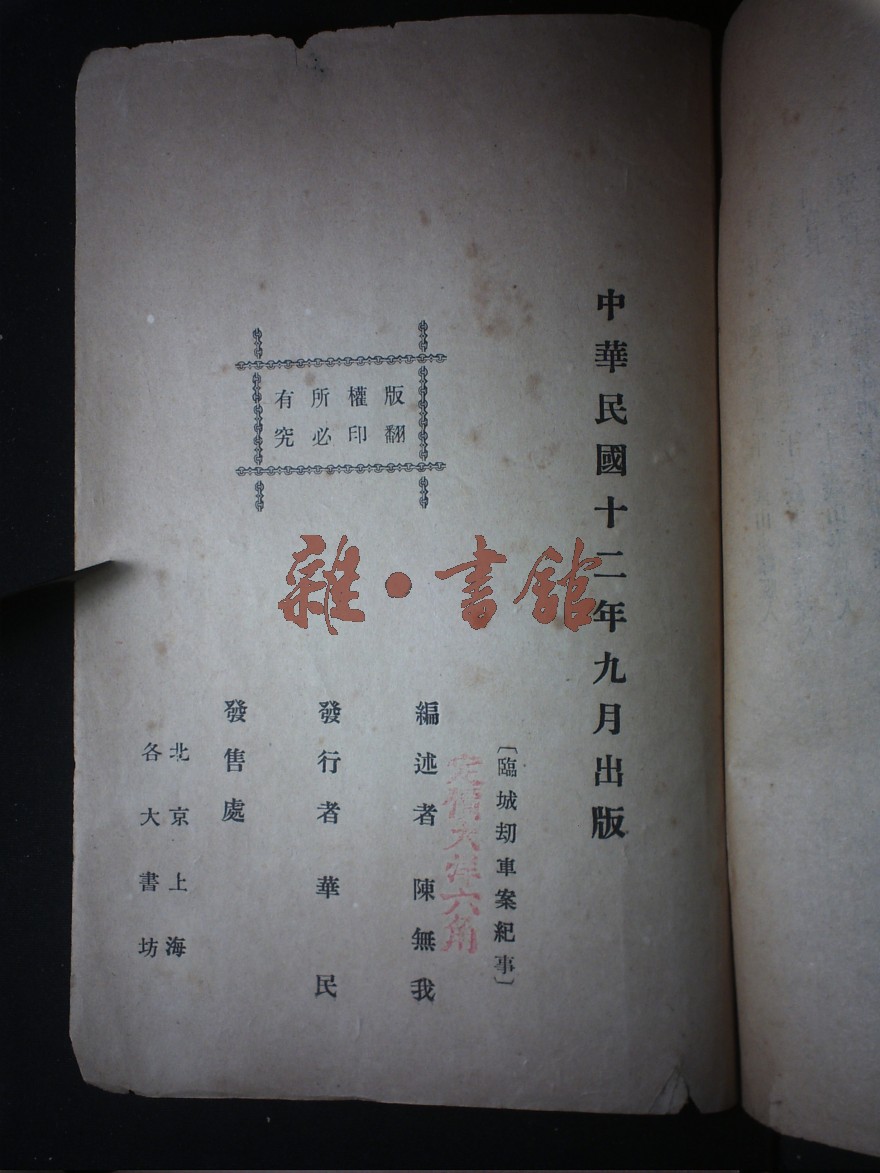 中華民國十二年九月出版
版權所有
翻印必究
〔臨城刧車案紀事〕
定價大洋六角
編述者 陳無我
發行者 華民
發售處
北京上海
各大書坊
雜·書館